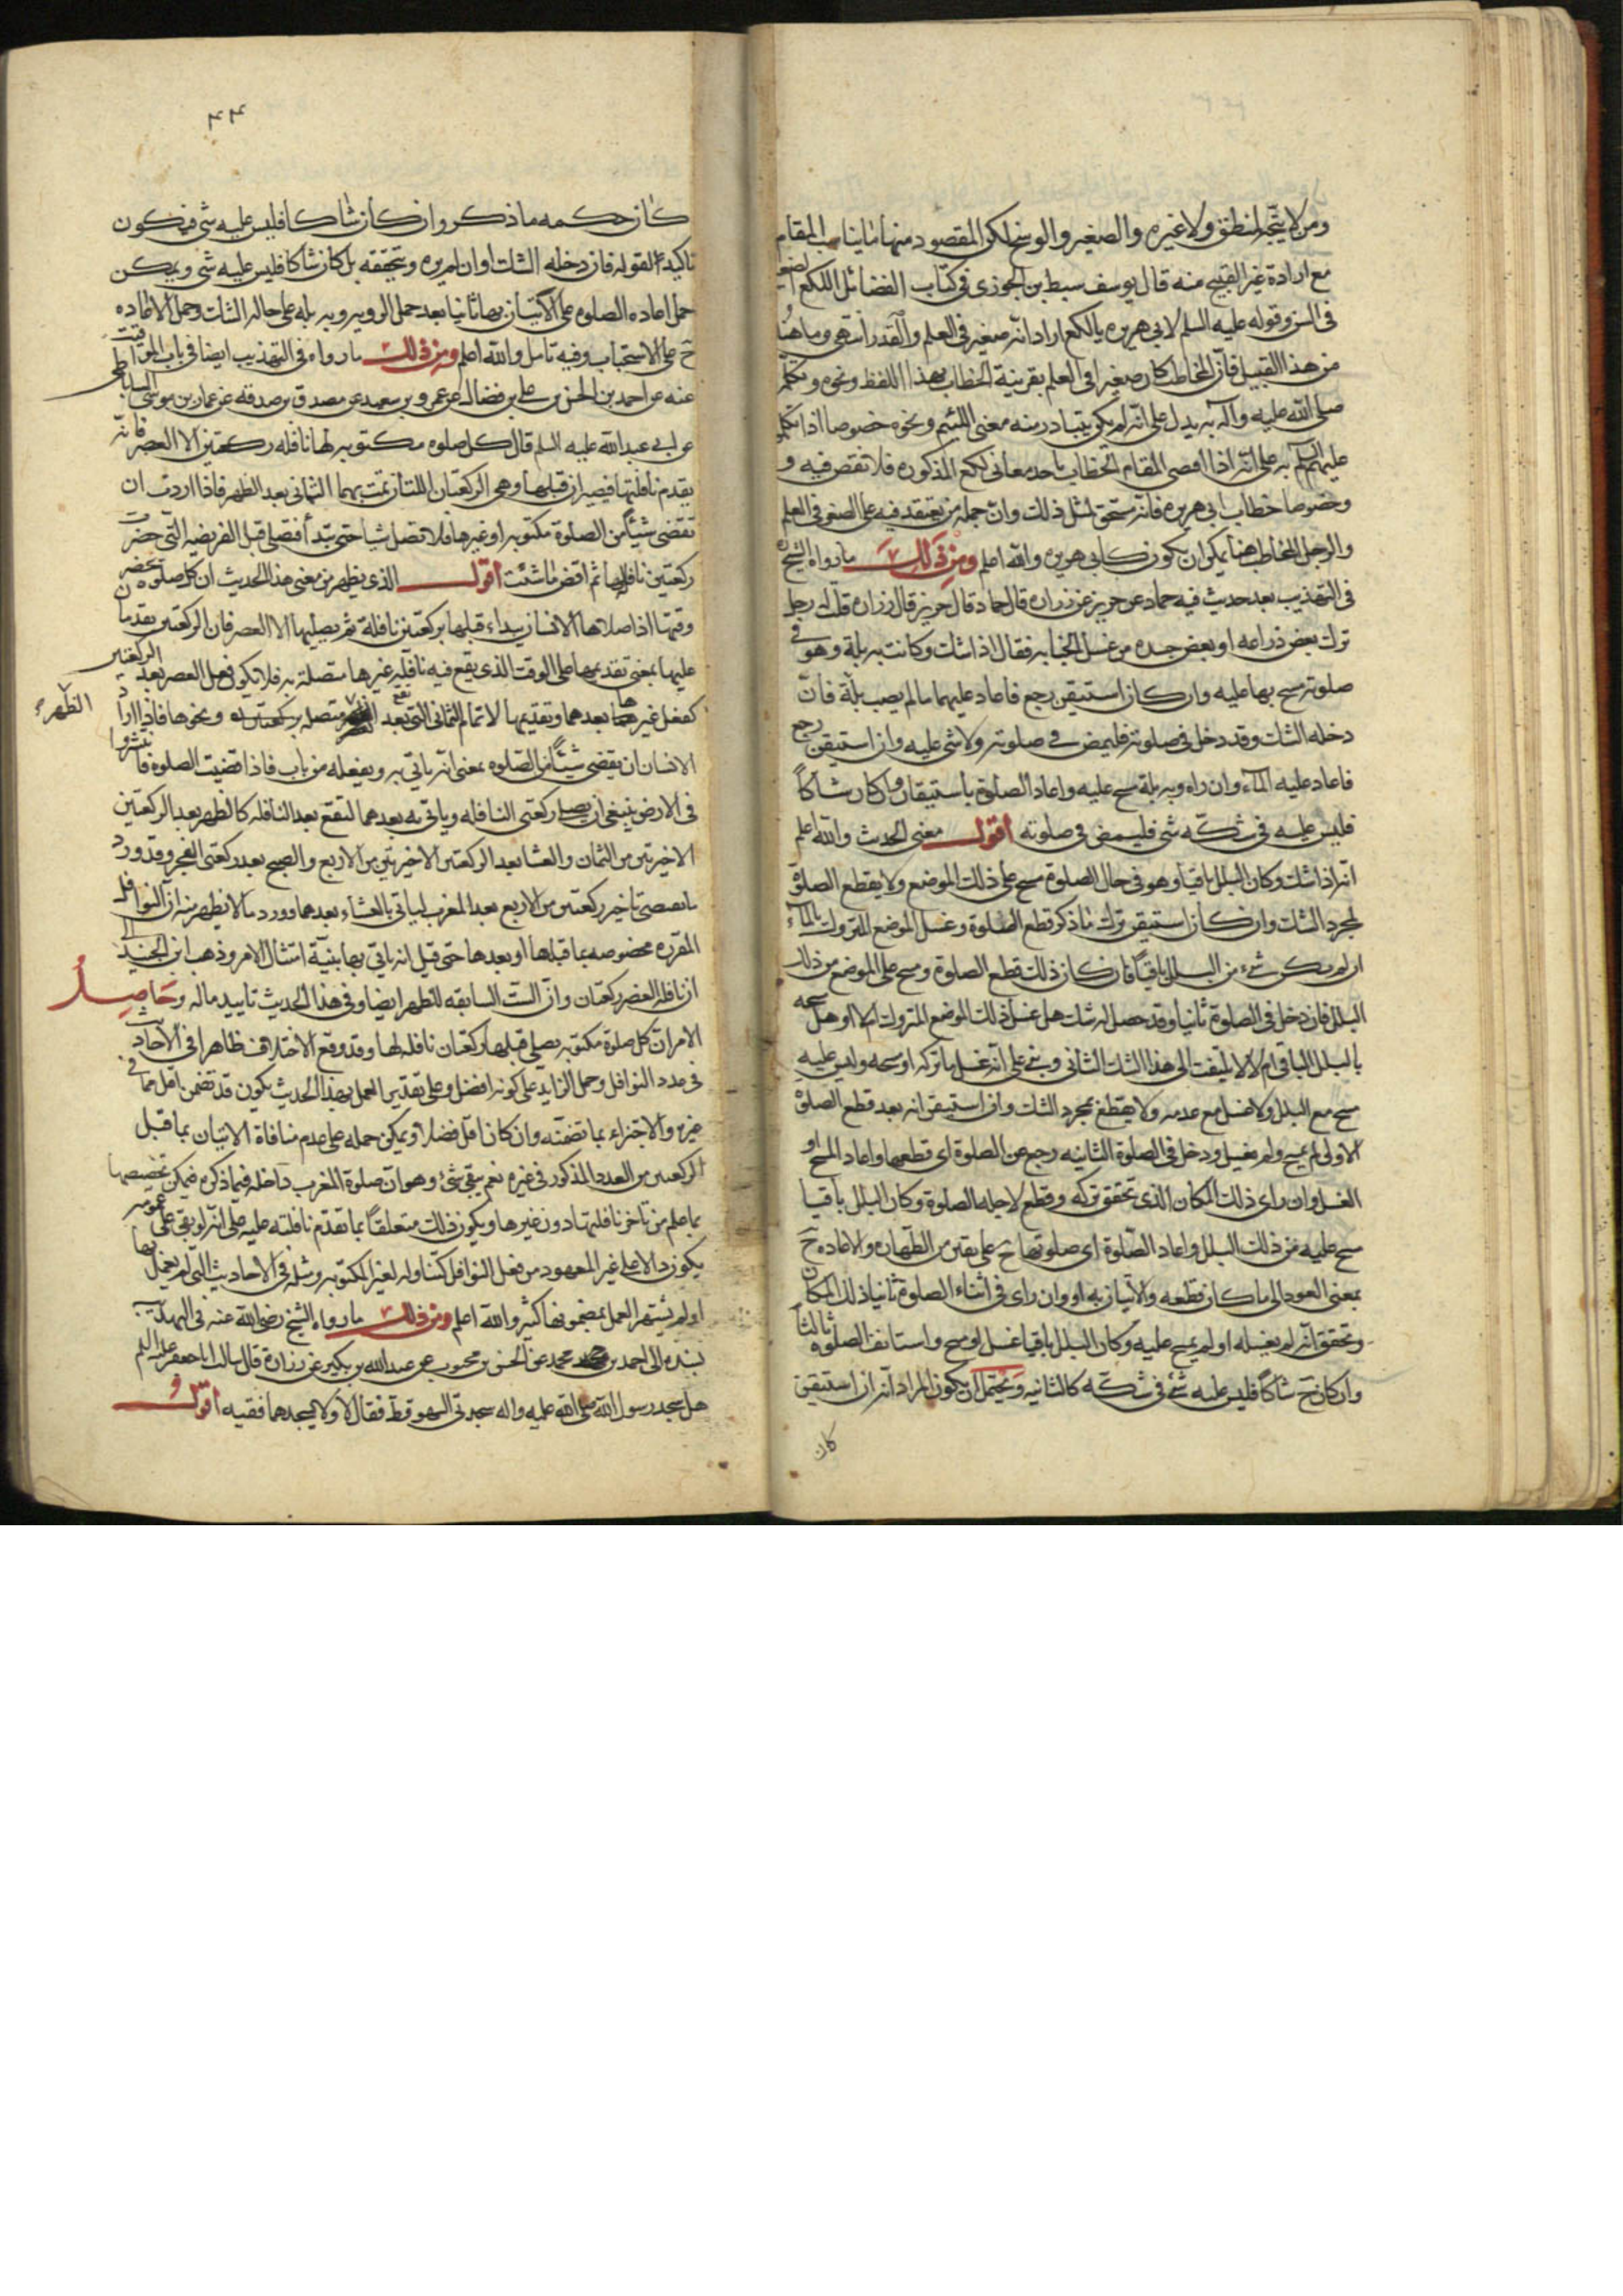 ومن لا يتجه لمنطق ولا غيره والصغير والوسخ لكن المقصود منها ما يناسب المقام
مع ارادة غير القبيح منه قال يوسف سبط بن الجوزى فى كتاب الفضائل اللكع الصغير
فى السن وقوله عليه السلم لابى هريره يا لكع اراد انه صغير فى العلم والقدر انتهى وما هنا
من هذا القبيل فان المخاطب كان صغيرا فى العلم بقرينة الخطاب بهذا اللفظ ونحوه وتكلم
صلى الله عليه وآله به يدل على انه لم يكن يتبادر منه معنى الشتم ونحوه خصوصا اذا تكلم
عليهم السلم به على انه اذا اقتضى المقام الخطاب باحد معانى لكع المذكوره فلا نقص فيه و
وخصوصا خطاب ابى هريره فانه مستحق لمثل ذلك وان جمله من يعتقد فيه على الصغر فى العلم
والرجل المخاطب هنا يمكن ان يكون كابى هريره والله اعلم ومن ذلك ما رواه الشيخ ره
فى التهذيب بعد حديث فيه حماد عن حريز عن زراره قال حماد قال حريز قال زراره قلت له رجل
ترك بعض ذراعه او بعض جسده من غسل الجنابه فقال اذا شك وكانت به بلة وهو فى
صلوته مسح بها عليه وان كان استيقن رجع فاعاد عليهما ما لم يصب بلة فان
دخله الشك وقد دخل فى صلوته فليمض فى صلوته ولا شى عليه وان استيقن رجع
فاعاد عليه الماء وان راه وبه بلة مسح عليه واعاد الصلوة باستيقان وان كان شاكا
فليس عليه فى شكه شى فليمض فى صلوته اقول معنى الحدث والله اعلم
انه اذا شك وكان البلل باقيا وهو فى حال الصلوة مسح على ذلك الموضع ولا يقطع الصلوة
لمجرد الشك وان كان استيقن ترك ما ذكر قطع الصلوة وغسل الموضع المتروك بالماء
ان لم يكن شىء من البلل باقيا فان كان ذلك قطع الصلوة ومسح على الموضع من ذلك
البلل فان دخل فى الصلوة ثانيا وقد حصل له شك هل غسل ذلك الموضع المتروك ام لا او هل مسحه
بالبلل الباقى ام لا لا يلتفت الى هذا الشك الثانى وبنى على انه غسل ما تركه او مسحه وليس عليه
مسح مع البلل ولا غسل مع عدمه ولا يقطع بمجرد الشك وان استيقن انه بعد قطع الصلوة
الاولى لم يمسح ولم يغسل ودخل فى الصلوة الثانيه رجع عن الصلوة اى قطعها واعاد المسح او
الغسل وان راى ذلك المكان الذى تحقق تركه وقطع لاجله الصلوة وكان البلل باقيا
مسح عليه من ذلك البلل واعاد الصلوة اى صلوتها ح على يقين من الطهاره والاعاده ح
بمعنى العود الى ما كان قطعه والاتيان به او وان راى فى اثناء الصلوة ثانيا ذلك المكان
وتحقق انه لم يغسله او لم يمسح عليه وكان البلل باقيا غسل او مسح واستانف الصلوة ثالثا
وان كان ح شاكا فليس عليه شئ فى شكه كالثانيه ويحتمل ان يكون المراد انه ان استيقن
كان
٤٤
كان حكمه ما ذكر وان كان شاكا فليس عليه شى فيكون
تاكيدا لقوله فان دخله الشك او ان لم يره ويتحققه بل كان شاكا فليس عليه شى ويمكن
حمل اعاده الصلوه على الاتيان بها ثانيا بعد حمل الرويه وبه بله على حاله الشك وحمل الاعاده
ح على الاستحباب وفيه تامل والله اعلم ومن ذلك ما رواه فى التهذيب ايضا فى باب المواقيت
عنه عن احمد بن الحسن بن على بن فضال عن عمرو بن سعيد عن مصدق بن صدقه عن عمار بن موسى الساباطى
عن ابى عبد الله عليه السلم قال كل صلوه مكتوبه لها نافله ركعتين الا العصر فانه
يقدم نافلتها فيصيران قبلها وهى الركعتان اللتان تمت بهما الثمانى بعد الظهر فاذا اردت ان
تقضى شيئا من الصلوة مكتوبه او غيرها فلا تصل شيا حتى تبدأ فتصلى قبل الفريضه التى حضرت
ركعتين نافله لها ثم اقض ما شئت اقول الذى يظهر من معنى هذا الحديث ان كل صلوه يحضر
وقتها اذا صلاها الانسان يبداء قبلها بركعتين نافلة ثم يصليها الا العصر فان الركعتين يقدمان
عليها بمعنى تقديمها على الوقت الذى يقع فيه نافله غيرها متصلة به فلا يكون فعل العصر بعد الركعتين
كفعل غيرها بعدهما وتقديمها لاتمام الثمانى التى تقع بعد الظهر متصله بركعتين ونحوها فاذا اراد
الظهر
الانسان ان يقضى شيئا من الصلوه بمعنى انه ياتى به ويفعله من باب فاذا قضيت الصلوه فانتشروا
فى الارض ينبغى ان يصلى ركعتى النافله وياتى به بعدهما لتقع بعد النافله كالظهر بعد الركعتين
الاخيرتين من الثمان والعشا بعد الركعتين الاخيرتين من الاربع والصبح بعد ركعتى الفجر وقد ورد
ما يقتضى تاخير ركعتين من الاربع بعد المغرب لياتى بالعشاء بعدهما وورد ما لا يظهر منه ان النوافل
المقرره مخصوصه بما قبلها او بعدها حتى قيل انه ياتى بها بنية امتثال الامر وذهب ابن الجنيد الى
ان نافله العصر ركعتان وان الست السابقه للظهر ايضا وفى هذا الحديث تاييد ما له وحاصل
الامر ان كل صلوة مكتوبه يصلى قبلها ركعتان نافله لها وقد وقع الاختلاف ظاهرا فى الاحاديث
فى عدد النوافل وحمل الزايد على كونه افضل وعلى تقدير العمل بهذا الحديث يكون قد تضمن اقل مما فى
غيره والاجتزاء بما تضمنه وان كان اقل فضلا ويمكن حمله على عدم منافاة الاتيان بما قبل
الركعتين من العدد المذكور فى غيره نعم يبقى شئ وهو ان صلوة المغرب داخله فيما ذكره فيمكن تخصيصها
بما علم من تاخر نافلتها دون غيرها ويكون ذلك متعلقا بما تقدم نافلته عليه على انه لو بقى على عمومه
يكون دالا على غير المعهود من فعل النوافل كتناوله لغير المكتوبه ومثله فى الاحاديث التى لم يعمل بها
او لم يشتهر العمل بمضمونها كثير والله اعلم ومن ذلك ما رواه الشيخ رضى الله عنه فى التهذيب
بسنده الى احمد بن محمد عن الحسن بن محبوب عن عبد الله بن بكير عن زرارة قال سالت ابا جعفر عليه السلم
هل سجد رسول الله صلى الله عليه واله سجدتى السهو قط فقال لا ولا يسجدهما فقيه اقول